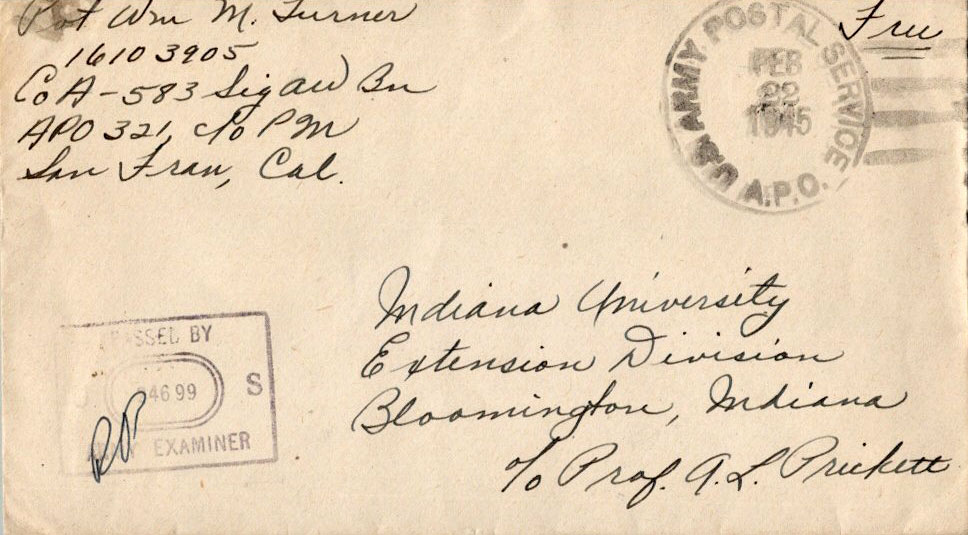 Pvt Wm M. Turner
16103905
Co A - 583 Sig AW Bn
APO 321, c/o PM
San Fran, Cal.
Free
U.S. ARMY POSTAL SERVICE
FEB
22
1945
A.P.O.
PASSED BY
U 04699 S
ARMY EXAMINER
Indiana University
Extension Division
Bloomington, Indiana
c/o Prof. A. L. Prickett